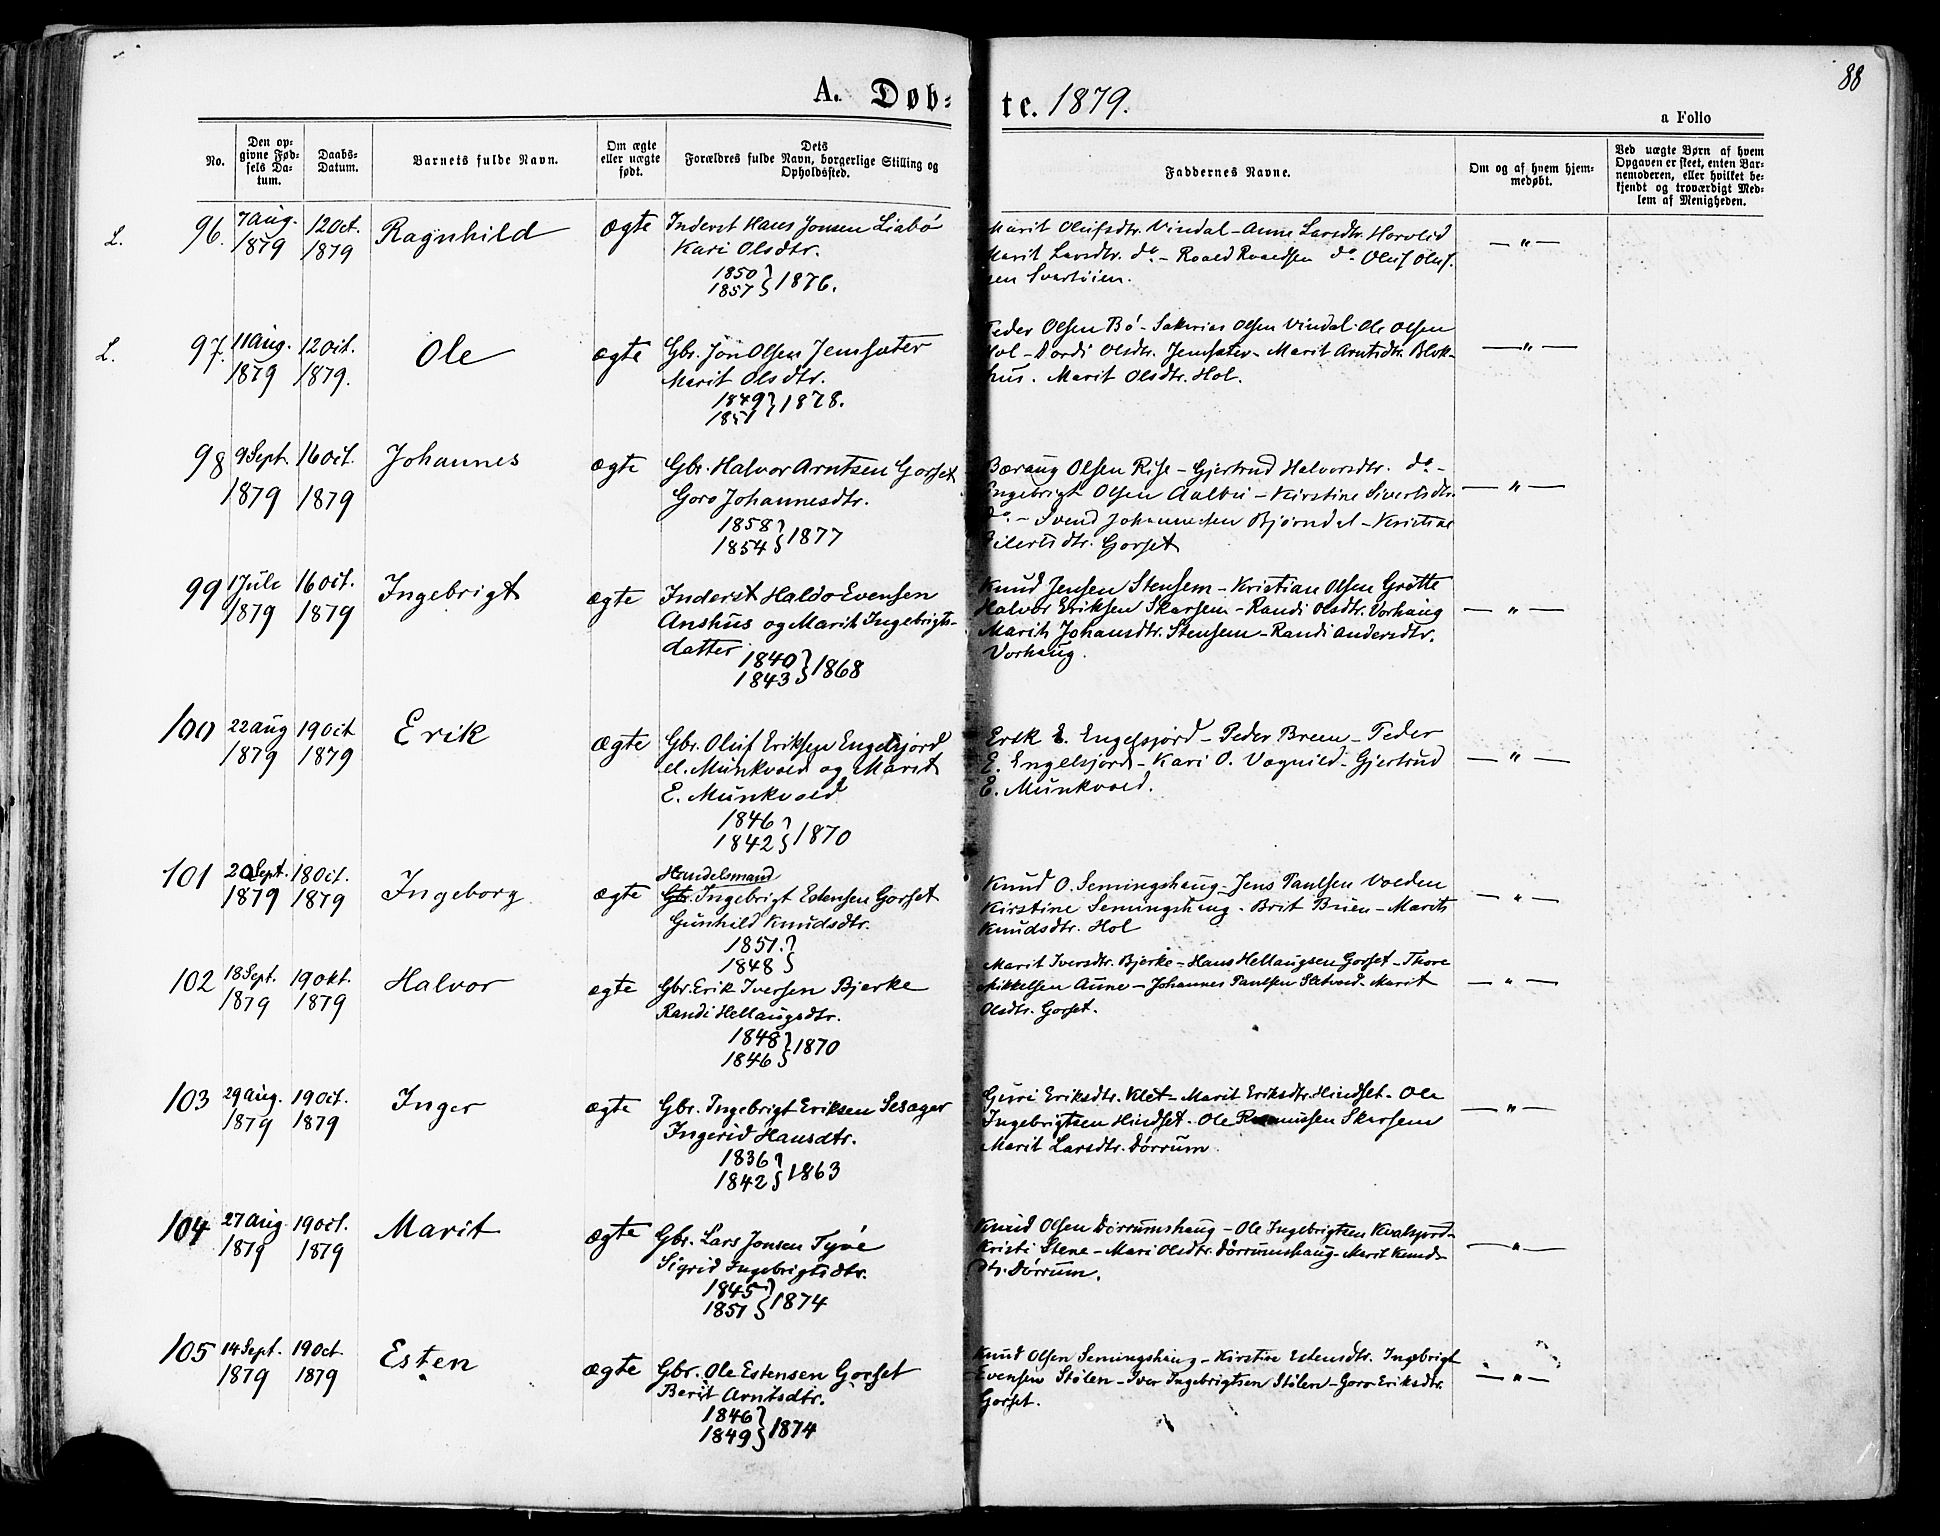 88
A. Døb-
te. 1879.
a Folio
No.
Den op-
givne Fød-
sels Da-
tum.
Daabs-
Datum.
Barnets fulde Navn.
Om ægte
eller uægte
født.
Dets
Forældres fulde Navn, borgerlige Stilling og
Opholdssted.
Faddernes Navne.
Om og af hvem hjem-
medøbt.
Ved uægte Børn af hvem
Opgaven er skeet, enten Bar-
nemoderen, eller hvilket be-
kjendt og troværdigt Med-
lem af Menigheden.
L.
96.
7 Aug.
1879
12 Oct.
1879
Ragnhild
ægte
Inderst Hans Jonsen Liabø
Kari Olsdtr.
1850
1857 } 1876.
Marit Olufsdtr. Vindal - Anne Larsdtr. Horvlid
Marit Larsdtr. do. - Roald Roaldsen do. Oluf Oluf-
sen Svartøien.
— " —
L.
97.
11 Aug.
1879
12 Oct.
1879.
Ole
ægte
Gbr. Jon Olsen Jemsæter
Marit Olsdtr.
1849
1851 } 1878.
Peder Olsen Bø - Sakarias Olsen Vindal - Ole Olsen
Hol - Dordi Olsdtr. Jemsæter - Marit Arntsdtr. Blok-
hus. Marit Olsdtr. Hol.
— " —
98
9 Sept.
1879
16 Oct.
1879
Johannes
ægte
Gbr. Halvor Arntsen Gorset
Goro Johannesdtr.
1858
1854 } 1877
Bæraug Olsen Rise - Gjertrud Halvorsdtr. do. -
Engebrigt Olsen Aalbu - Kirstine Sivertsdtr.
do. - Svend Johannesen Bjørndal - Kristine
Eilertsdtr. Gorset
— " —
99
1 Juli
1879
16 Oct.
1879
Ingebrigt
ægte
Inderst Haldo Evensen
Anshus og Marit Ingebrigts-
datter
1840
1843 } 1868
Knud Jensen Stensem - Kristian Olsen Grøtte
Halvor Eriksen Skarsem - Randi Olsdtr. Vorhaug
Marit Johansdtr. Stensem - Randi Andersdtr.
Vorhaug.
— " —
100
22 Aug
1879
19 Oct
1879
Erik
ægte
Gbr. Oluf Eriksen Engelsjord
el. Munkvold og Marit
E. Munkvold
1846
1842 } 1870
Erik E. Engelsjord - Peder Breen - Peder
E. Engelsjord - Kari O. Vognild - Gjertrud
E. Munkvold.
— " —
101
20 Sept.
1879
18 Oct.
1879
Ingeborg
ægte
Handelsmand
Gbr. Ingebrigt Estensen Gorset
Gunhild Knudsdtr.
1851.
1848 }
Knud O. Semingshaug - Jens Paulsen Volden
Kirstine Semingshaug - Brit Buen - Marit
Knudsdtr. Hol
— " —
102
18 Sept.
1879
19 Okt.
1879
Halvor
ægte
Gbr. Erik Iversen Bjerke
Randi Hellaugsdtr.
1848
1846 } 1870
Marit Iversdtr. Bjerke - Hans Hellaugsen Gorset - Thore
Mikkelsen Aune - Johannes Paulsen Sletvold - Marit
Olsdtr. Gorset.
— " —
103
29 Aug.
1879
19 Oct.
1879
Inger
ægte
Gbr. Ingebrigt Eriksen Sesager
Ingerid Hansdtr.
1836
1842 } 1863
Guri Eriksdtr. Klet - Marit Eriksdtr. Hindset - Ole
Ingebrigtsen Hindset - Ole Rasmussen Skarsem
Marit Larsdtr. Dørrum.
— " —
104
27 Aug.
1879
19 Oct.
1879
Marit
ægte
Gbr. Lars Jonsen Tyve
Sigrid Ingebrigtsdtr.
1845
1851 } 1874
Knud Olsen Dørrumshaug - Ole Ingebrigtsen Kvalsjord -
Kristi Stene - Mari Olsdtr. Dørrumshaug - Marit Knuds-
dtr. Dørrum.
— " —
105
14 Sept.
1879
19 Oct
1879
Esten
ægte
Gbr. Ole Estensen Gorset
Berit Arntsdtr.
1846
1849 } 1874
Knud Olsen Semingshaug - Kirstine Estensdtr. Ingebrigt
Evensen Stølen - Iver Ingebrigtsen Stølen - Goro Eriksdtr.
Gorset.
— " —